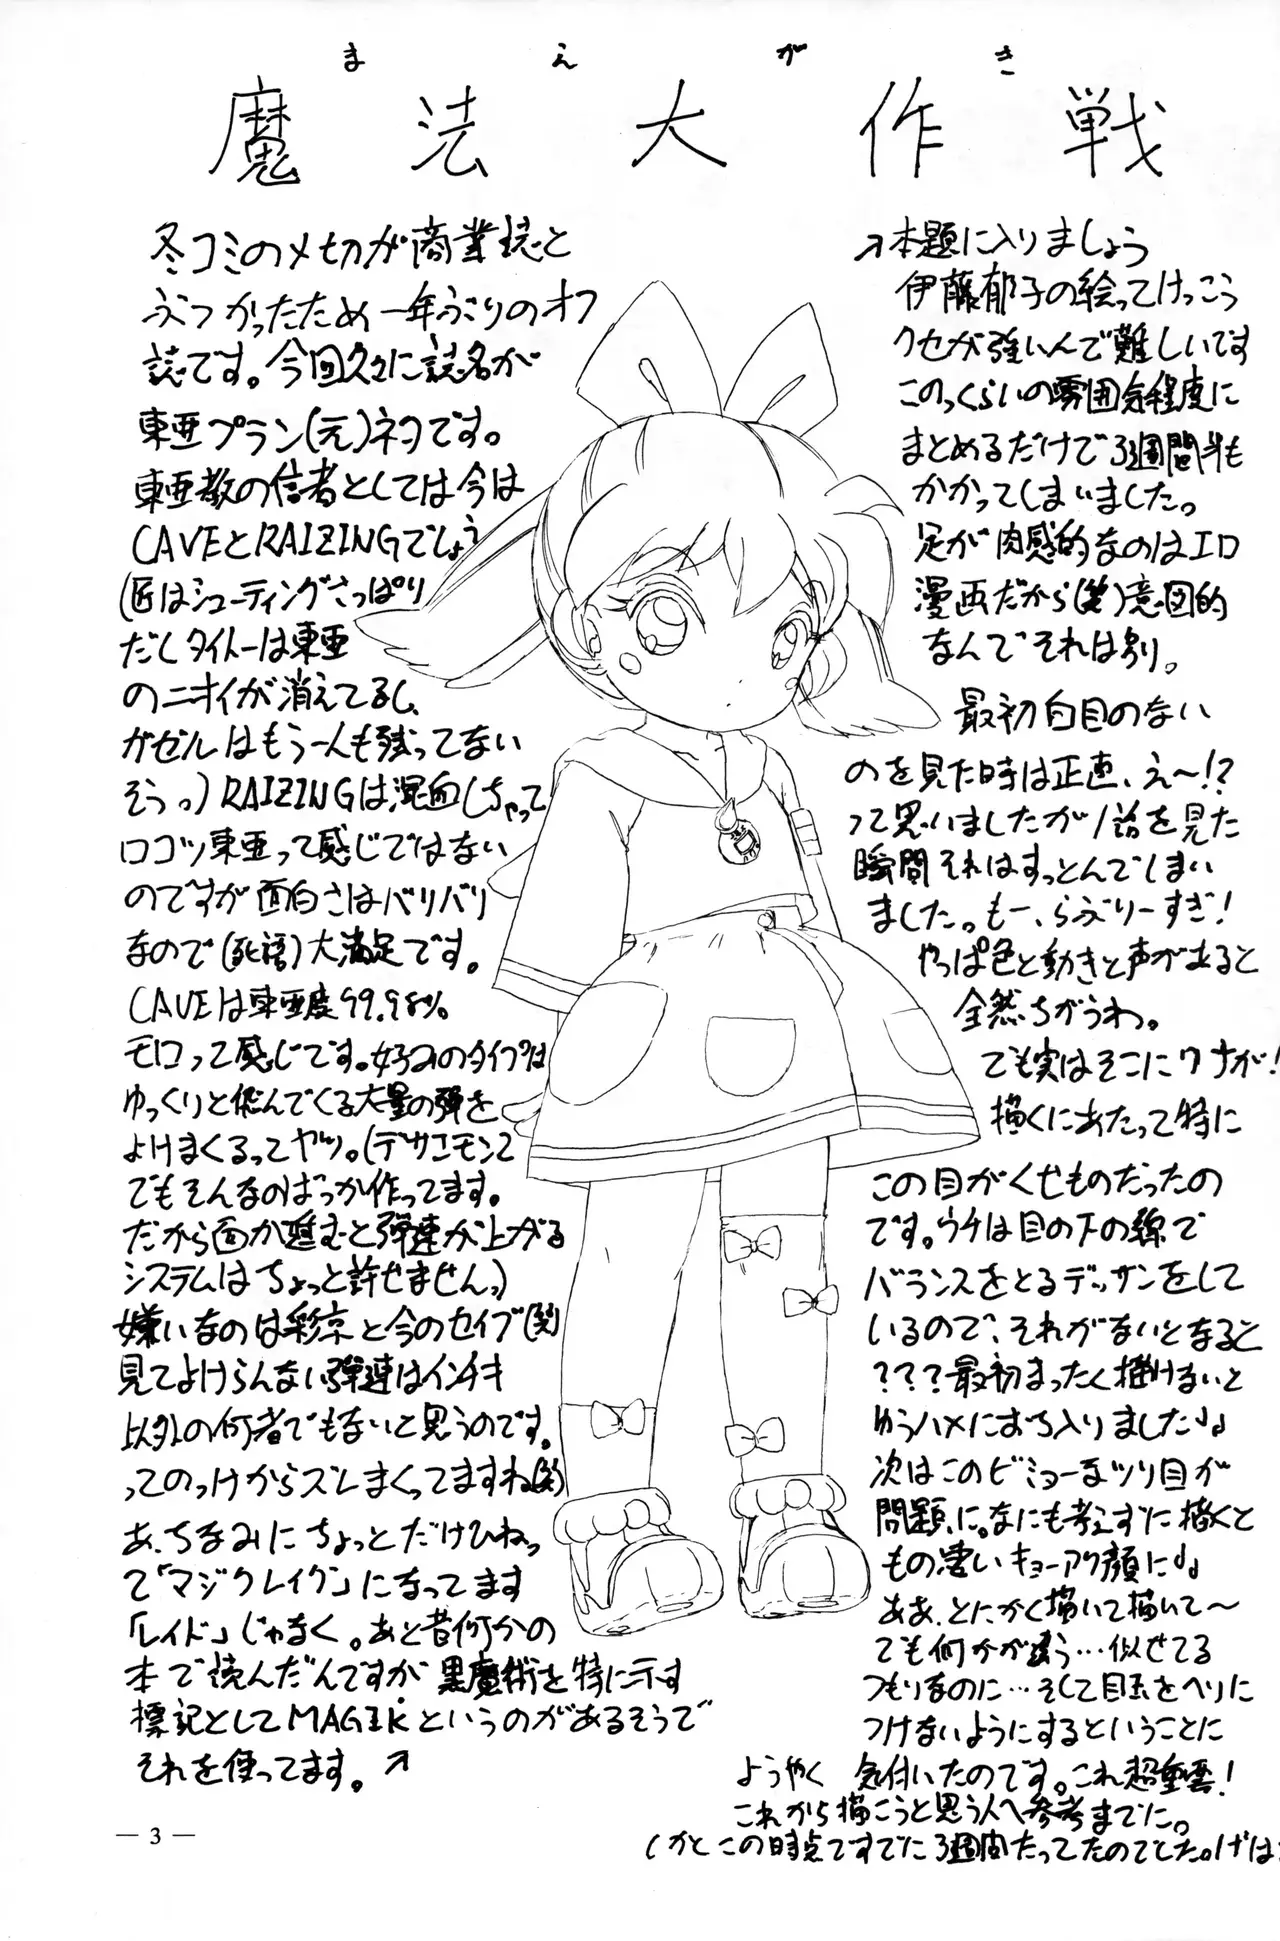 まえがき
魔法大作戦
冬コミのメ切が商業誌と
ぶつかったため一年ぶりのオフ
誌です。今回久々に誌名が
東亜プラン(元)ネタです。
東亜教の信者としては今は
CAVEとRAIZINGでしょう
(匠はシューティングさっぱり
だしタイトーは東亜
のニオイが消えてるし、
ガゼルはもう一人も残ってない
そうっ)RAIZINGは混血しちゃって
ロコツ東亜って感じではない
のですが面白さはバリバリ
なので(死語)大満足です。
CAVEは東亜度99.98%。
モロって感じです。好みのタイプは
ゆっくりと飛んでくる大量の弾を
よけまくるってヤツ。(デザエモン2
でもそんなのばっか作ってます。
だから面が進むと弾速が上がる
システムはちょっと許せませんっ)
嫌いなのは彩京と今のセイブ(関)
見てよけらんない弾速はインチキ
以外の何者でもないと思うのです。
ってのっけからズレまくってますね(笑)
あ、ちなみにちょっとだけひねっ
て「マジクレイク」になってます
「レイド」じゃなく。あと昔何かの
本で読んだんですが黒魔術を特に示す
標記としてMAGIKというのがあるそうで
それを使ってます。↗
↗本題に入りましょう
伊藤郁子の絵ってけっこう
クセが強いんで難しいです
このっくらいの雰囲気程度に
まとめるだけで3週間半も
かかってしまいました。
足が肉感的なのはエロ
漫画だから(笑)意図的
なんでそれは別。
最初白目のない
のを見た時は正直、え〜!?
って思いましたが1話を見た
瞬間それはすっとんでしまい
ました。もー、らぶりーすぎ!
やっぱ色と動きと声があると
全然ちがうわ。
でも実はそこにワナが!
描くにあたって特に
この目がくせものだったの
です。ウチは目の下の線で
バランスをとるデッサンをして
いるので、それがないとなると
???最初まったく描けないと
ゆうハメにおち入りました♩
次はこのビミョーなツリ目が
問題に。なにも考えずに描くと
もの凄いキョーアク顔に♩
ああ、とにかく描いて描いて〜
でも何かが違う…似せてる
つもりなのに…そして目玉をへりに
つけないようにするということに
ようやく気付いたのです。これ超重要!
これから描こうと思う人へ参考までに。
(がとこの時点ですでに3週間たってたのでした。げは
— 3 —